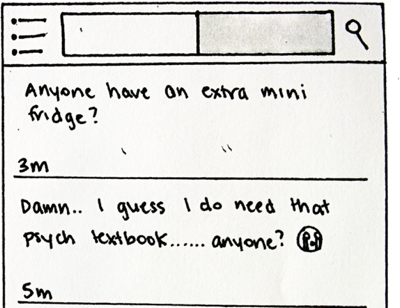 Anyone have an extra mini
fridge?
3m
Damn.. I guess I do need that
psych textbook...... anyone?
5m